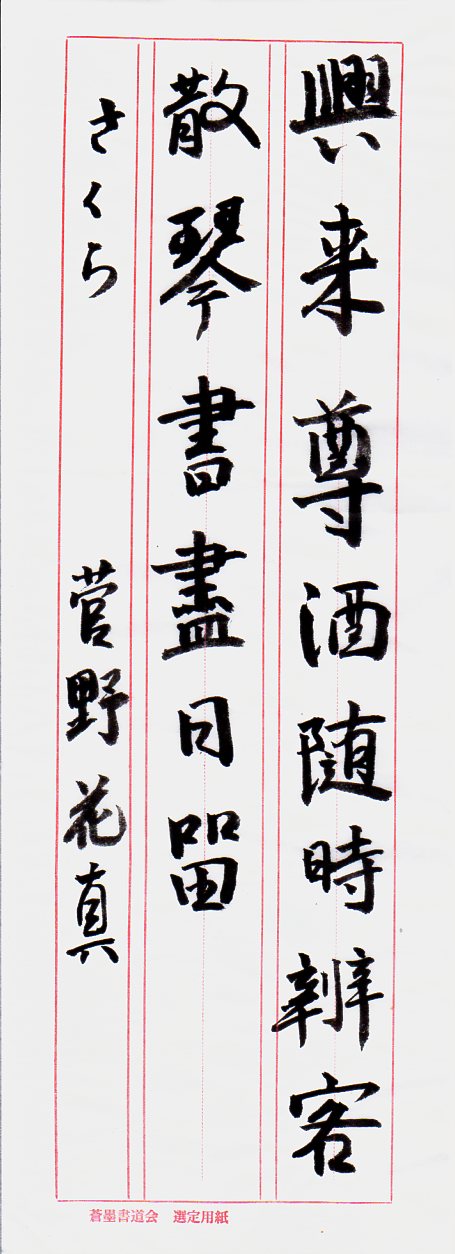 興来尊酒随時辨客
散琴書盡日留
さくら 菅野花真
蒼墨書道会 選定用紙